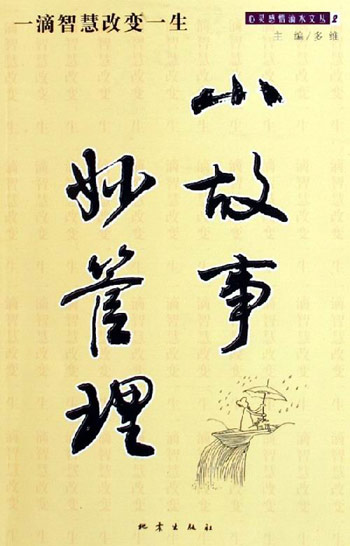 一滴智慧改变一生
心灵感悟滴水文丛 2
主 编/多 维
小故事
妙管理
地震出版社